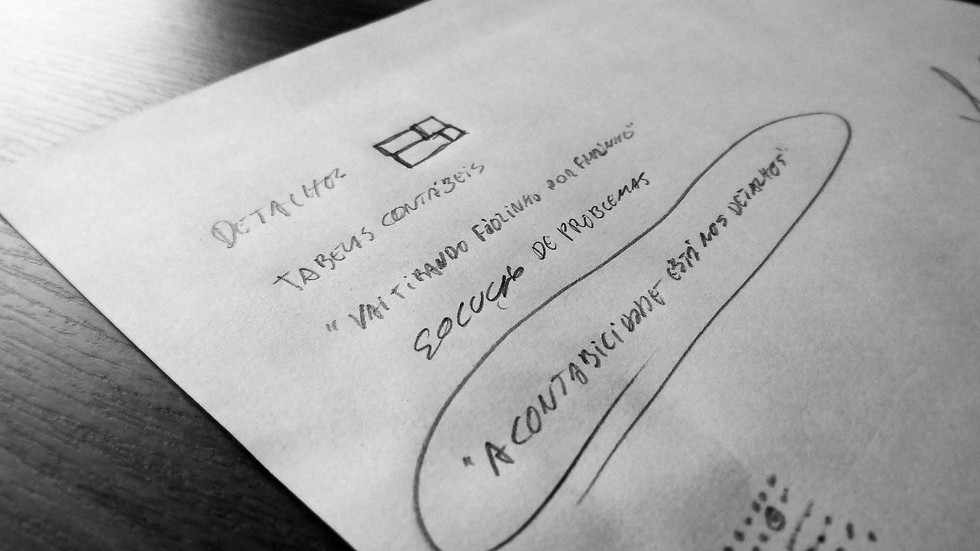 DETALHES
TABELAS CONTÁBEIS
"VAI TIRANDO FIOZINHO POR FIOZINHO"
SOLUÇÃO DE PROBLEMAS
"A CONTABILIDADE ESTÁ NOS DETALHES"